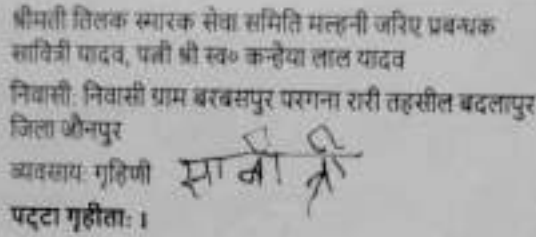 श्रीमती तिलक स्मारक सेवा समिति मल्हनी जरिए प्रबन्धक
सावित्री यादव, पत्नी श्री स्व० कन्हैया लाल यादव
निवासी: निवासी ग्राम बरबसपुर परगना रारी तहसील बदलापुर
जिला जौनपुर
व्यवसाय: गृहिणी सावीत्री
पट्टा गृहीता: ।